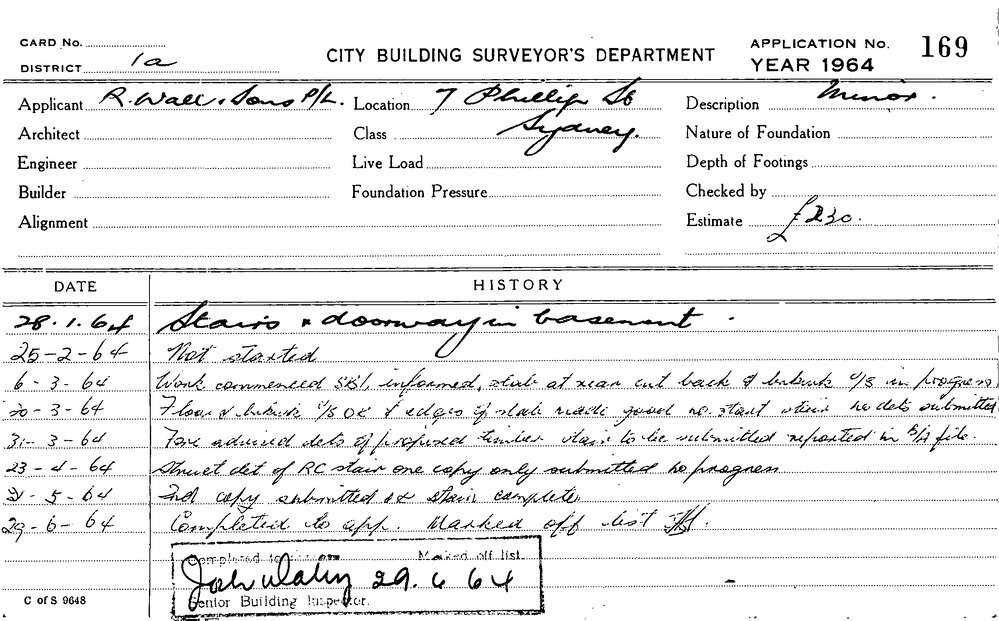 CARD No.
DISTRICT 1a
CITY BUILDING SURVEYOR'S DEPARTMENT
APPLICATION No. 169
YEAR 1964
Applicant R. Wall & Sons P/L. Location 7 Phillip St Description Minor.
Architect Class Sydney. Nature of Foundation
Engineer Live Load Depth of Footings
Builder Foundation Pressure Checked by
Alignment Estimate £230.
DATE HISTORY
28.1.64 Stairs & doorway in basement.
25-2-64 Not started
6-3-64 Work commenced informed, slab at rear cut back & in progress
20-3-64 Floor & OK & edges of slab made good no start stair no dets submitted
31-3-64 advised dets of proposed timber stair to be submitted reported in B/A file.
23-4-64 Struct det of RC stair one copy only submitted no progress
21-5-64 2nd copy submitted stair complete
29-6-64 Completed to app. Marked off list
Completed to Marked off list.
29.6.64
Senior Building Inspector.
C of S 9648